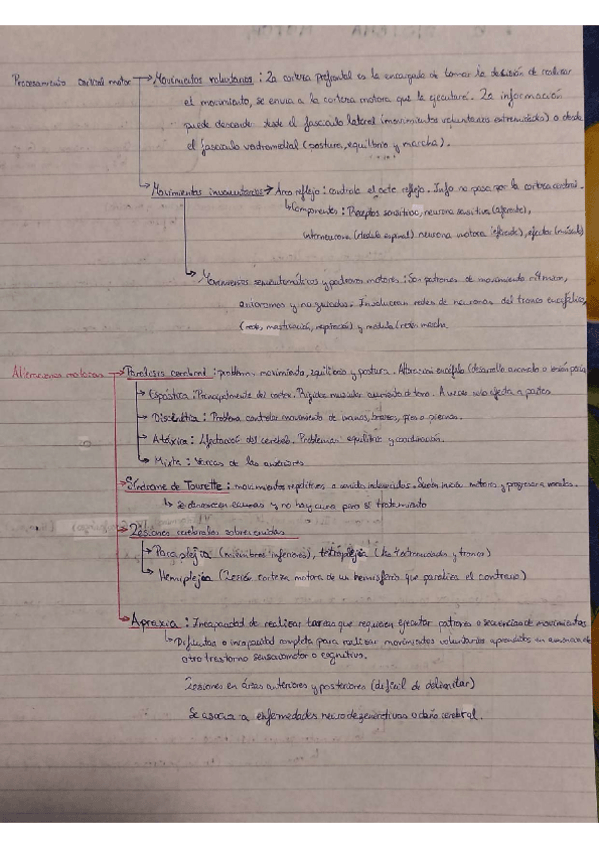 Procesamiento cortical motor → Movimientos voluntarios : La corteza prefrontal es la encargada de tomar la decisión de realizar
el movimiento, se envia a la corteza motora que la ejecutará. La información
puede descender desde el fascículo lateral (movimientos voluntarios extremidades) o desde
el fascículo ventromedial (postura, equilibrio y marcha).
Movimientos involuntarios → Arco reflejo : controla el acto reflejo. Info no pasa por la corteza cerebral.
Componentes : Receptor sensitivo, neurona sensitiva (aferente),
interneurona (médula espinal), neurona motora (eferente), efector (músculo)
Movimientos semiautomáticos y patrones motores : Son patrones de movimiento rítmicos,
y Involucran redes de neuronas del tronco encefálico,
masticación, respiración) y médula marcha.
Alteraciones motoras → Parálisis cerebral : problem. movimiento, equilibrio y postura. encéfalo (desarrollo anómalo o lesión
→ Espástica : Principalmente del cortex. Rigidez muscular, aumento de tono. A veces solo afecta a partes
→ Discinética : Problema controlar movimiento de manos, brazos, pies o piernas.
→ Atáxica : Afectación del cerebelo. Problemas equilibrio y coordinación.
→ Mixta : Varias de las anteriores
Síndrome de Tourette : movimientos repetitivos o sonidos indeseados. Suelen iniciar motores y progresar a vocales.
↳ Se desconocen causas y no hay cura pero sí tratamiento
Lesiones cerebrales sobrevenidas
→ Paraplejia (miembros inferiores), tetraplejia (las 4 extremidades y tronco)
→ Hemiplejia (Lesión corteza motora de un hemisferio que paraliza el contrario)
Apraxia : Incapacidad de realizar tareas que requieren ejecutar patrones o secuencias de movimientos
↳ Dificultad o incapacidad completa para realizar movimientos voluntarios aprendidos en ausencia de
otro trastorno sensoriomotor o cognitivo.
Lesiones en áreas anteriores y posteriores (difícil de delimitar)
Se asocia a enfermedades neurodegenerativas o daño cerebral.